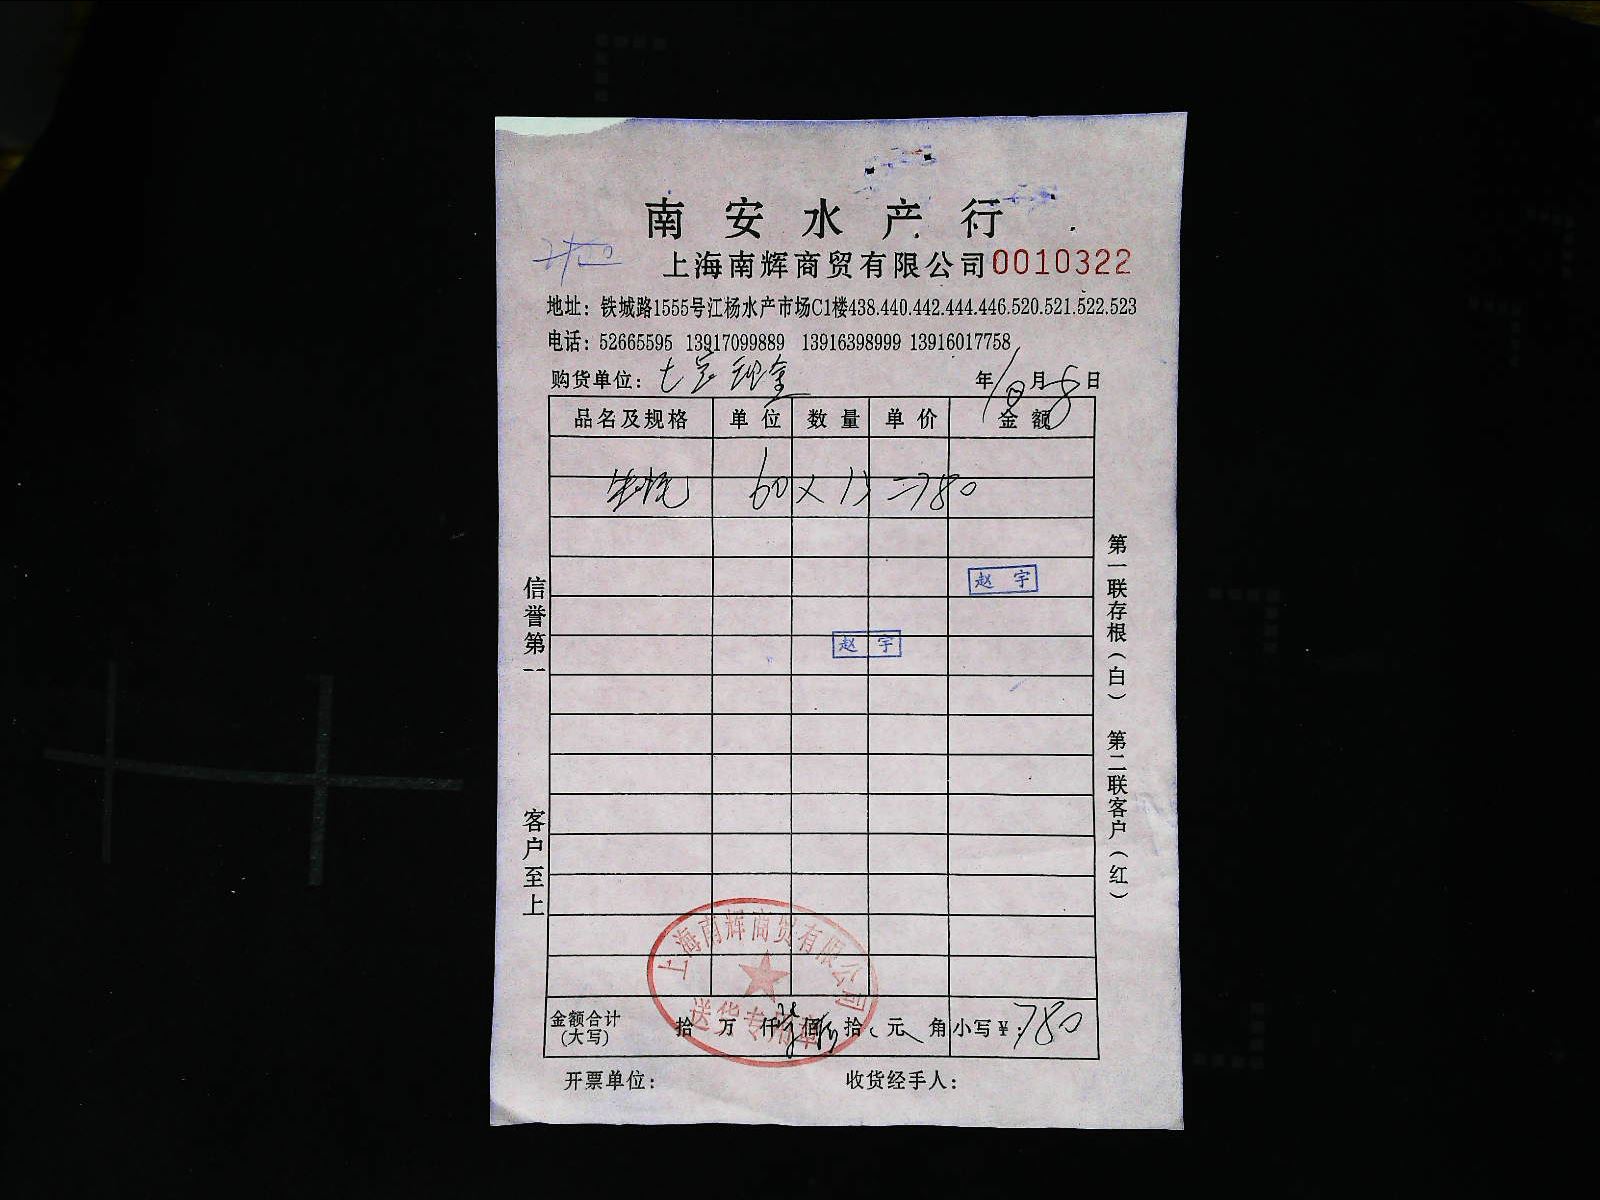 南安水产行
上海南辉商贸有限公司0010322
地址：铁城路1555号江杨水产市场C1楼438.440.442.444.446.520.521.522.523
电话：52665595 13917099889 13916398999 13916017758
购货单位：七宝现金 年10月8日
品名及规格 单位 数量 单价 金额
60×13=780
赵宇
赵宇
信誉第一
客户至上
第一联存根（白） 第二联客户（红）
上海南辉商贸有限公司
送货专用章
金额合计（大写） 拾 万 仟 柒 佰 捌 拾 元 角 小写￥：780
开票单位： 收货经手人：